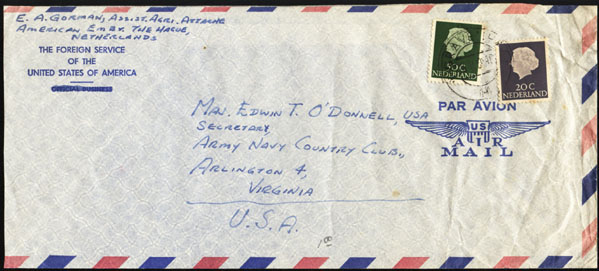 E. A. GORMAN, ASSIST. AGRI. ATTACHE
AMERICAN EMBY. THE HAGUE,
NETHERLANDS
THE FOREIGN SERVICE
OF THE
UNITED STATES OF AMERICA
OFFICIAL BUSINESS
50 C
NEDERLAND
20 C
NEDERLAND
PAR AVION
US
AIR
MAIL
MAJ. EDWIN T. O'DONNELL, USA
SECRETARY
ARMY NAVY COUNTRY CLUB,
ARLINGTON 4,
VIRGINIA
U.S.A.